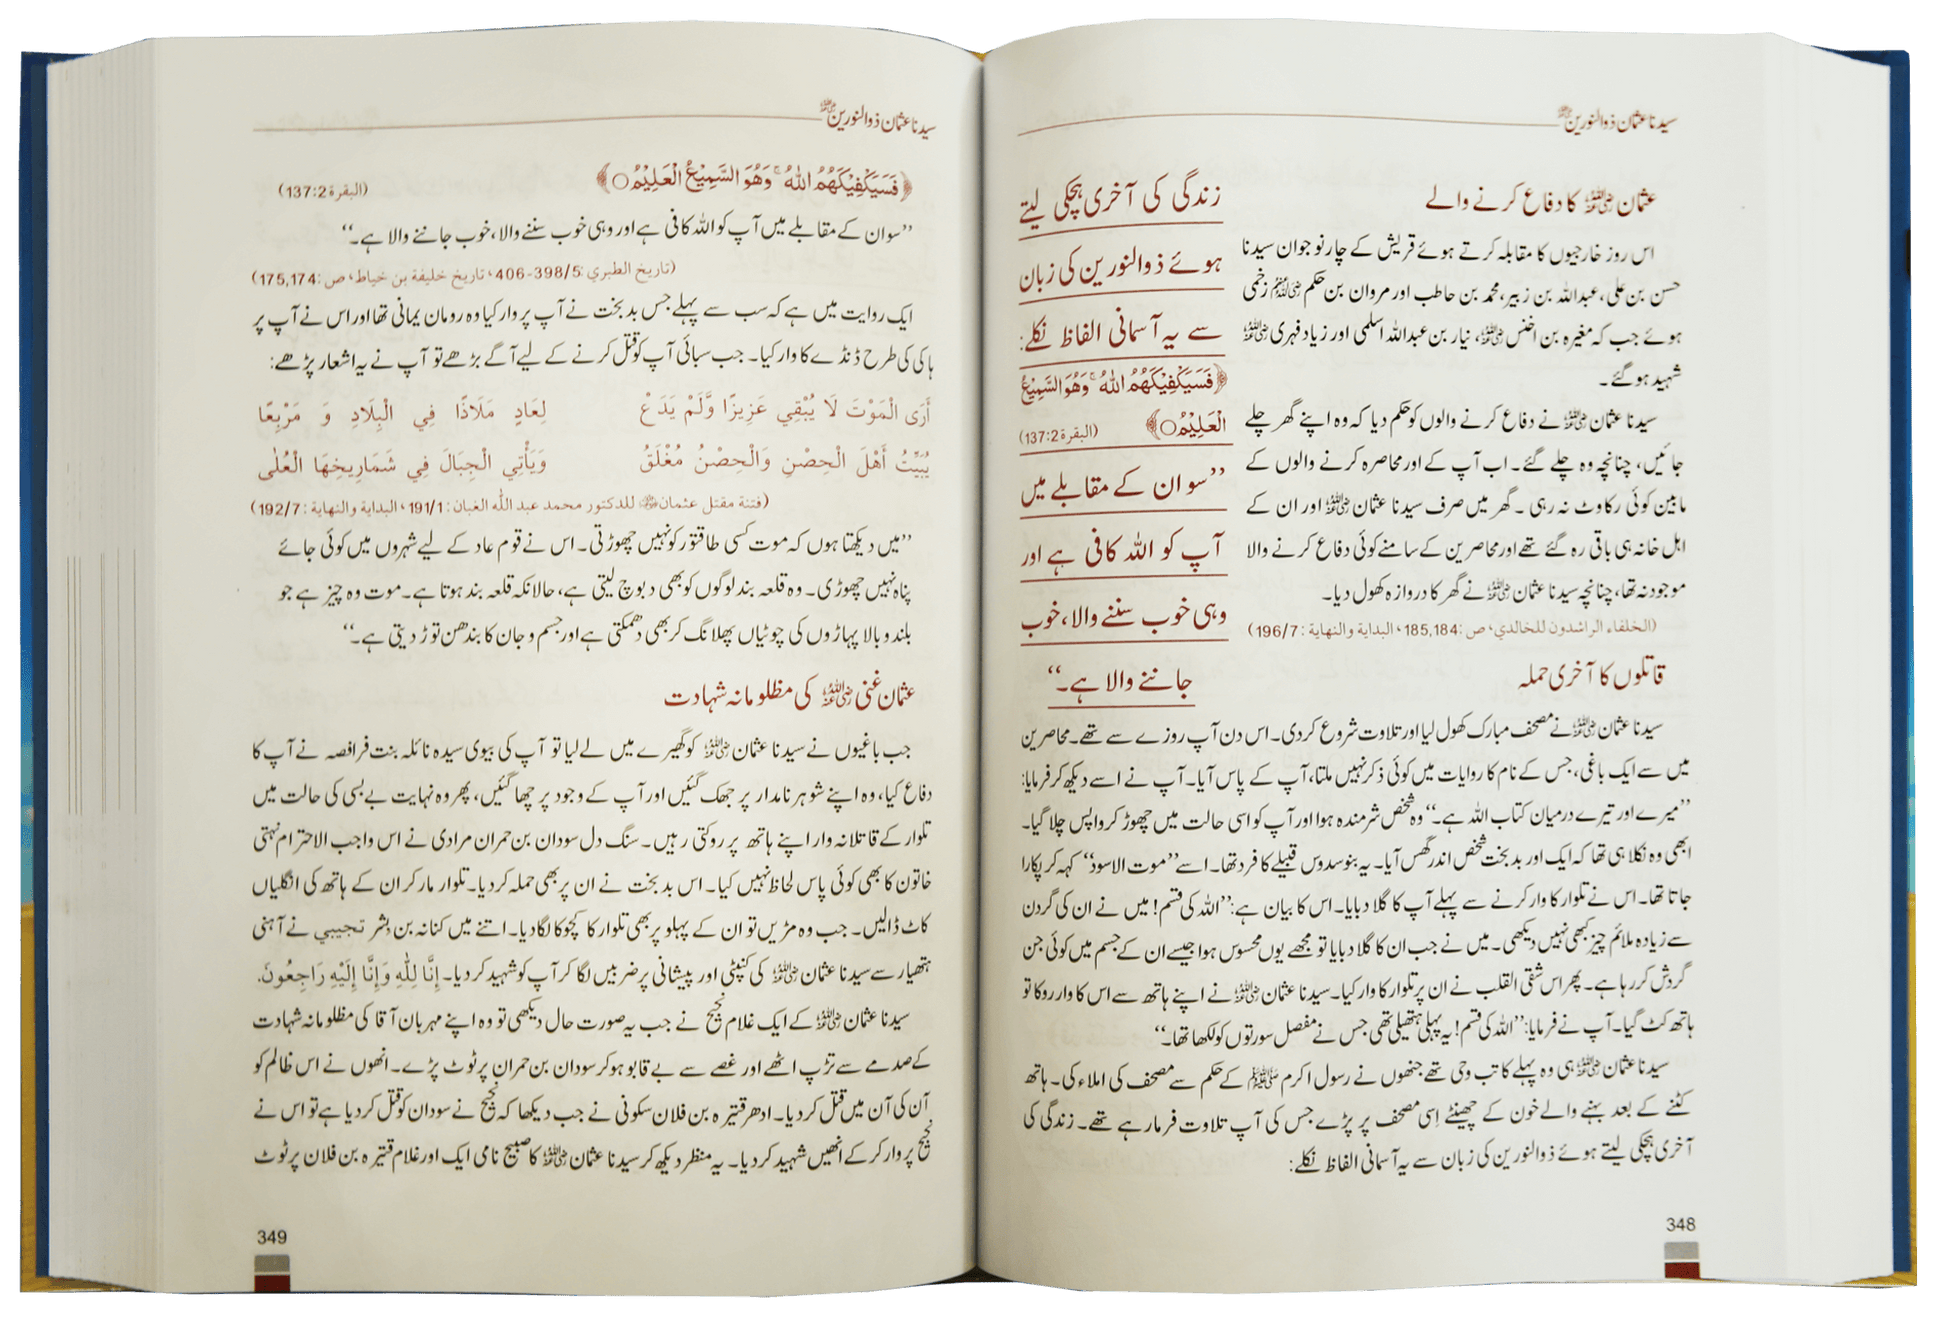 سیدنا عثمان ذوالنورین رضی اللہ عنہ
عثمان رضی اللہ عنہ کا دفاع کرنے والے
اس روز خارجیوں کا مقابلہ کرتے ہوئے قریش کے چار نوجوان سیدنا
حسن بن علی، عبداللہ بن زبیر، محمد بن حاطب اور مروان بن حکم رضی اللہ عنہم زخمی
ہوئے جب کہ مغیرہ بن اخنس رضی اللہ عنہ، نیار بن عبداللہ اسلمی اور زیاد فہری رضی اللہ عنہ
شہید ہو گئے۔
سیدنا عثمان رضی اللہ عنہ نے دفاع کرنے والوں کو حکم دیا کہ وہ اپنے گھر چلے
جائیں، چنانچہ وہ چلے گئے۔ اب آپ کے اور محاصرہ کرنے والوں کے
مابین کوئی رکاوٹ نہ رہی۔ گھر میں صرف سیدنا عثمان رضی اللہ عنہ اور ان کے
اہل خانہ ہی باقی رہ گئے تھے اور محاصرین کے سامنے کوئی دفاع کرنے والا
موجود نہ تھا، چنانچہ سیدنا عثمان رضی اللہ عنہ نے گھر کا دروازہ کھول دیا۔
(الخلفاء الراشدون للخالدي، ص: 185,184، البداية والنهاية: 196/7)
زندگی کی آخری ہچکی لیتے
ہوئے ذوالنورین کی زبان
سے یہ آسمانی الفاظ نکلے:
﴿فَسَيَكْفِيْكَهُمُ اللّٰهُ ۚ وَهُوَ السَّمِيْعُ
الْعَلِيْمُ ○﴾ (البقرة 137:2)
’’سو ان کے مقابلے میں
آپ کو اللہ کافی ہے اور
وہی خوب سننے والا، خوب
جاننے والا ہے۔‘‘
قاتلوں کا آخری حملہ
سیدنا عثمان رضی اللہ عنہ نے مصحف مبارک کھول لیا اور تلاوت شروع کر دی۔ اس دن آپ روزے سے تھے۔ محاصرین
میں سے ایک باغی، جس کے نام کا روایات میں کوئی ذکر نہیں ملتا، آپ کے پاس آیا۔ آپ نے اسے دیکھ کر فرمایا:
’’میرے اور تیرے درمیان کتاب اللہ ہے۔‘‘ وہ شخص شرمندہ ہوا اور آپ کو اسی حالت میں چھوڑ کر واپس چلا گیا۔
ابھی وہ نکلا ہی تھا کہ ایک اور بدبخت شخص اندر گھس آیا۔ یہ بنو سدوس قبیلے کا فرد تھا۔ اسے ’’موت الاسود‘‘ کہہ کر پکارا
جاتا تھا۔ اس نے تلوار کا وار کرنے سے پہلے آپ کا گلا دبایا۔ اس کا بیان ہے: ’’اللہ کی قسم! میں نے ان کی گردن
سے زیادہ ملائم چیز کبھی نہیں دیکھی۔ میں نے جب ان کا گلا دبایا تو مجھے یوں محسوس ہوا جیسے ان کے جسم میں کوئی جن
گردش کر رہا ہے۔ پھر اس شقی القلب نے ان پر تلوار کا وار کیا۔ سیدنا عثمان رضی اللہ عنہ نے اپنے ہاتھ سے اس کا وار روکا تو
ہاتھ کٹ گیا۔ آپ نے فرمایا: ’’اللہ کی قسم! یہ پہلی ہتھیلی تھی جس نے مفصل سورتوں کو لکھا تھا۔‘‘
سیدنا عثمان رضی اللہ عنہ ہی وہ پہلے کاتب وحی تھے جنھوں نے رسول اکرم ﷺ کے حکم سے مصحف کی املاء کی۔ ہاتھ
کٹنے کے بعد بہنے والے خون کے چھینٹے اِسی مصحف پر پڑے جس کی آپ تلاوت فرما رہے تھے۔ زندگی کی
آخری ہچکی لیتے ہوئے ذوالنورین کی زبان سے یہ آسمانی الفاظ نکلے:
348
سیدنا عثمان ذوالنورین رضی اللہ عنہ
﴿فَسَيَكْفِيْكَهُمُ اللّٰهُ ۚ وَهُوَ السَّمِيْعُ الْعَلِيْمُ ○﴾ (البقرة 137:2)
’’سو ان کے مقابلے میں آپ کو اللہ کافی ہے اور وہی خوب سننے والا، خوب جاننے والا ہے۔‘‘
(تاريخ الطبري: 398/5-406، تاريخ خليفة بن خياط، ص: 175,174)
ایک روایت میں ہے کہ سب سے پہلے جس بدبخت نے آپ پر وار کیا وہ رومان یمانی تھا اور اس نے آپ پر
ہاکی کی طرح ڈنڈے کا وار کیا۔ جب سبائی آپ کو قتل کرنے کے لیے آگے بڑھے تو آپ نے یہ اشعار پڑھے:
أَرَى الْمَوْتَ لَا يُبْقِي عَزِيزًا وَّلَمْ يَدَعْ لِعَادٍ مَلَاذًا فِي الْبِلَادِ وَ مَرْبِعًا
يُبَيِّتُ أَهْلَ الْحِصْنِ وَالْحِصْنُ مُغْلَقُ وَيَأْتِي الْجِبَالَ فِي شَمَارِيخِهَا الْعُلٰى
(فتنة مقتل عثمان رضی اللہ عنہ للدكتور محمد عبد اللّٰه الغبان: 191/1، البداية والنهاية: 192/7)
’’میں دیکھتا ہوں کہ موت کسی طاقتور کو نہیں چھوڑتی۔ اس نے قوم عاد کے لیے شہروں میں کوئی جائے
پناہ نہیں چھوڑی۔ وہ قلعہ بند لوگوں کو بھی دبوچ لیتی ہے، حالانکہ قلعہ بند ہوتا ہے۔ موت وہ چیز ہے جو
بلند و بالا پہاڑوں کی چوٹیاں پھلانگ کر بھی آ دھمکتی ہے اور جسم و جان کا بندھن توڑ دیتی ہے۔‘‘
عثمان غنی رضی اللہ عنہ کی مظلومانہ شہادت
جب باغیوں نے سیدنا عثمان رضی اللہ عنہ کو گھیرے میں لے لیا تو آپ کی بیوی سیدہ نائلہ بنت فرافصہ نے آپ کا
دفاع کیا، وہ اپنے شوہر نامدار پر جھک گئیں اور آپ کے وجود پر چھا گئیں، پھر وہ نہایت بے بسی کی حالت میں
تلوار کے قاتلانہ وار اپنے ہاتھ پر روکتی رہیں۔ سنگ دل سودان بن حمران مرادی نے اس واجب الاحترام نہتی
خاتون کا بھی کوئی پاس لحاظ نہیں کیا۔ اس بدبخت نے ان پر بھی حملہ کر دیا۔ تلوار مار کر ان کے ہاتھ کی انگلیاں
کاٹ ڈالیں۔ جب وہ مڑیں تو ان کے پہلو پر بھی تلوار کا کچوکا لگا دیا۔ اتنے میں کنانہ بن بشر تجیبي نے آہنی
ہتھیار سے سیدنا عثمان رضی اللہ عنہ کی کنپٹی اور پیشانی پر ضربیں لگا کر آپ کو شہید کر دیا۔ إِنَّا لِلّٰهِ وَإِنَّا إِلَيْهِ رَاجِعُونَ.
سیدنا عثمان رضی اللہ عنہ کے ایک غلام نجیح نے جب یہ صورت حال دیکھی تو وہ اپنے مہربان آقا کی مظلومانہ شہادت
کے صدمے سے تڑپ اٹھے اور غصے سے بے قابو ہو کر سودان بن حمران پر ٹوٹ پڑے۔ انھوں نے اس ظالم کو
آن کی آن میں قتل کر دیا۔ ادھر قتیرہ بن فلان سکونی نے جب دیکھا کہ نجیح نے سودان کو قتل کر دیا ہے تو اس نے
نجیح پر وار کر کے انھیں شہید کر دیا۔ یہ منظر دیکھ کر سیدنا عثمان رضی اللہ عنہ کا صبیح نامی ایک اور غلام قتیرہ بن فلان پر ٹوٹ
349